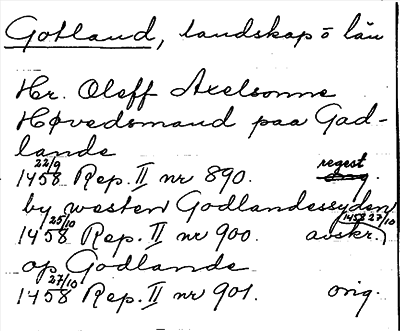 Gotland, landskap o län
Hr. Oleff Axelsonne
Høvedsmand paa God-
lande
22/9 regest
1458 Rep. II nr 890. orig.
by westen Godlandessyden!
25/10 1458 27/10
1458 Rep. II nr 900. avskr.)
op Godlande
27/10
1458 Rep. II nr 901. orig.